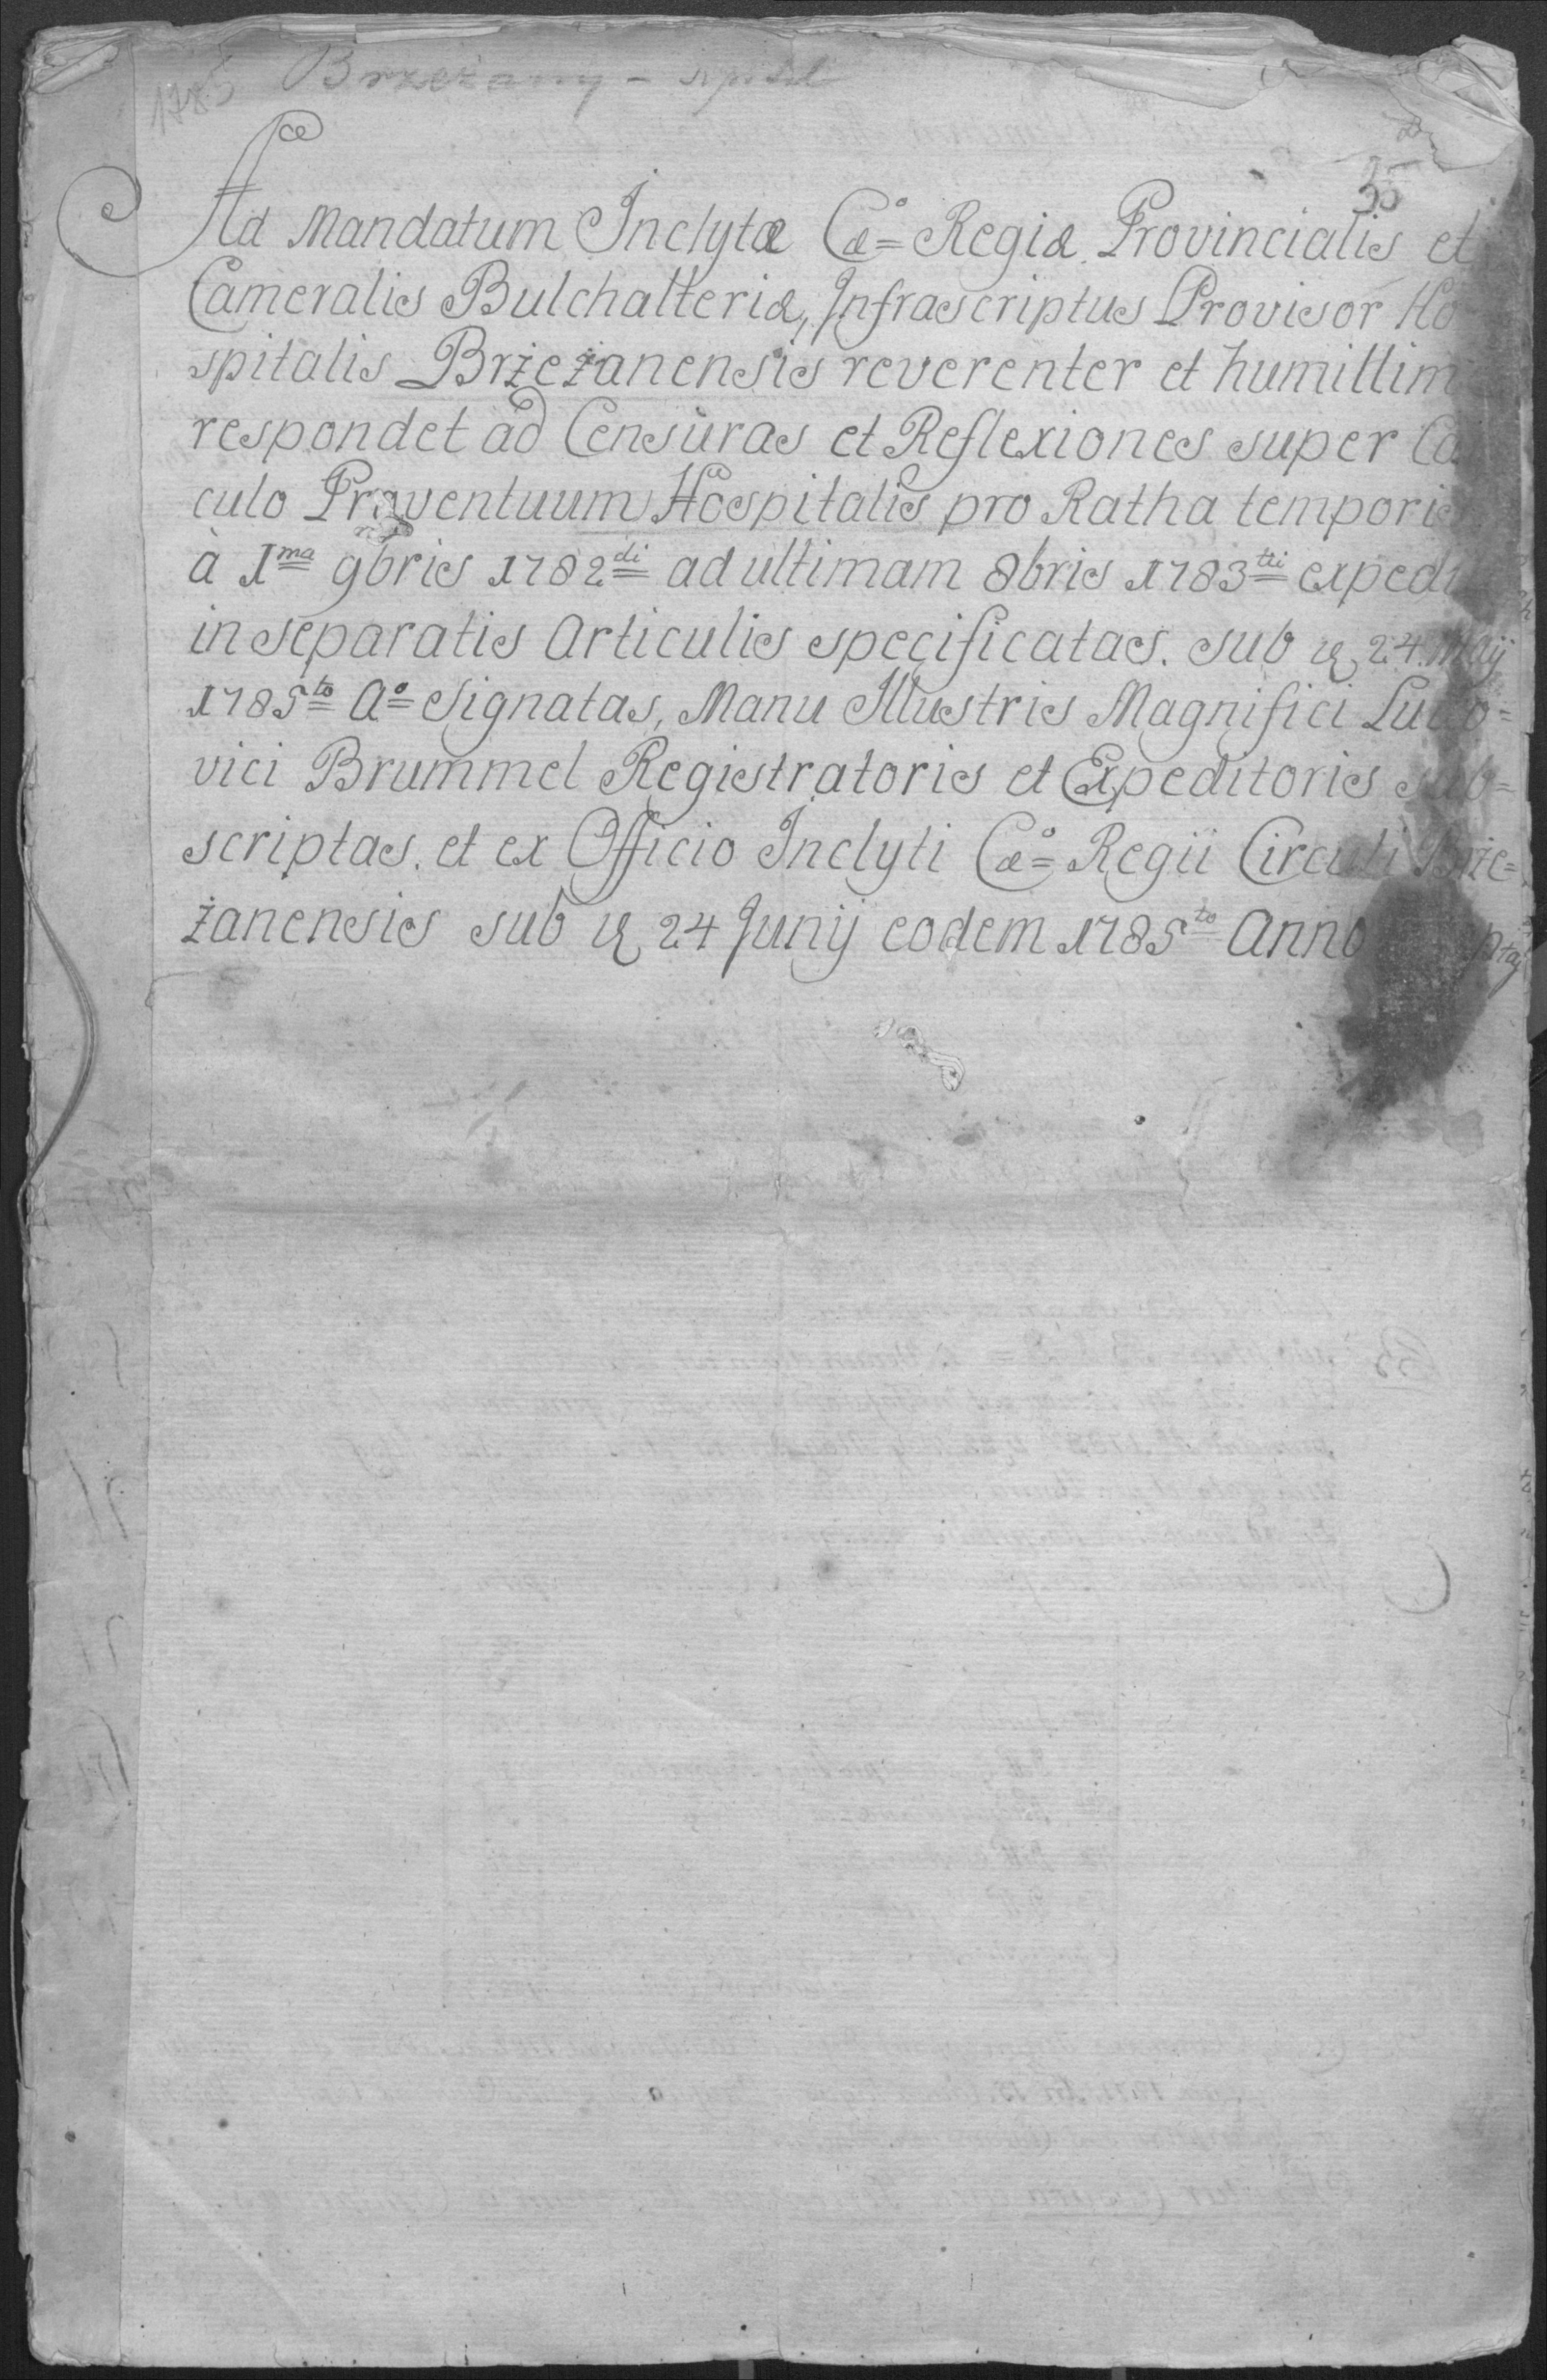 1785 Brzeżany - szpital
35
Ad Mandatum Inclytæ Cæº= Regiæ Provincialis et
Cameralis Bulchalteriæ, Infrascriptus Provisor Ho
spitalis Brżeżanensis reverenter et humillim
respondet ad Censuras et Reflexiones super Ca
culo Proventuum Hospitalis pro Ratha temporis
à 1ma 9bris 1782di ad ultimam 8bris 1783tii expedi
in separatis Articulis specificatas. sub 24 Maij
1785to Aº Signatas, Manu Illustris Magnifici Ludo=
vici Brummel Registratoris et Expeditoris sub=
scriptas. et ex Officio Inclyti Cæº= Regii Circuli Brże=
żanensis sub 24 Junij eodem 1785to Anno